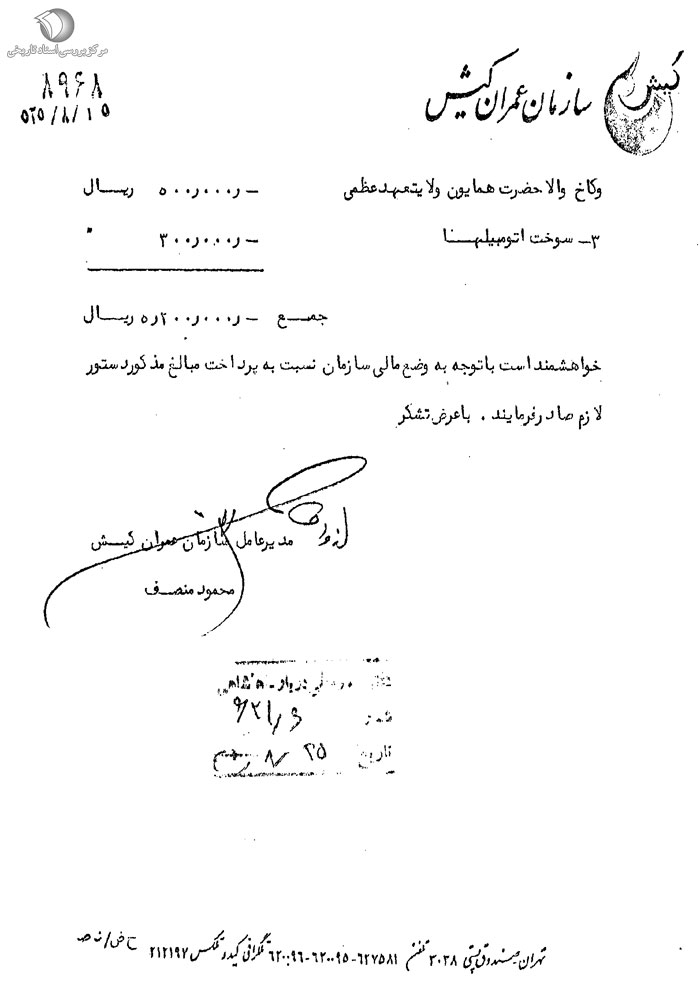 مرکز بررسی اسناد تاریخی
۸۹۶۸
۵۲۵/۸/۱۵
کیش
سازمان عمران کیش
وکاخ والاحضرت همایون ولایتعهد عظمی ۵۰۰ر۰۰۰ر - ریال
۳- سوخت اتومبیلهــا ۳۰۰ر۰۰۰ر - "
جمــع ۵ر۲۰۰ر۰۰۰ر - ریال
خواهشمند است باتوجه به وضع مالی سازمان نسبت به پرداخت مبالغ مذکور دستور
لازم صادرفرمایند . باعرض تشکر
مدیرعامل سازمان عمران کیــش
محمود منصــف
دربار شاهنشاهی
شماره
تاریخ ۲۵ / ۸
تهران صندوق پستی ۲۰۲۸ تلفن ۶۲۷۵۸۱-۶۲۰۰۹۵-۶۲۰۰۹۶ تلگرافی کیدو تلکس ۲۱۲۱۹۲